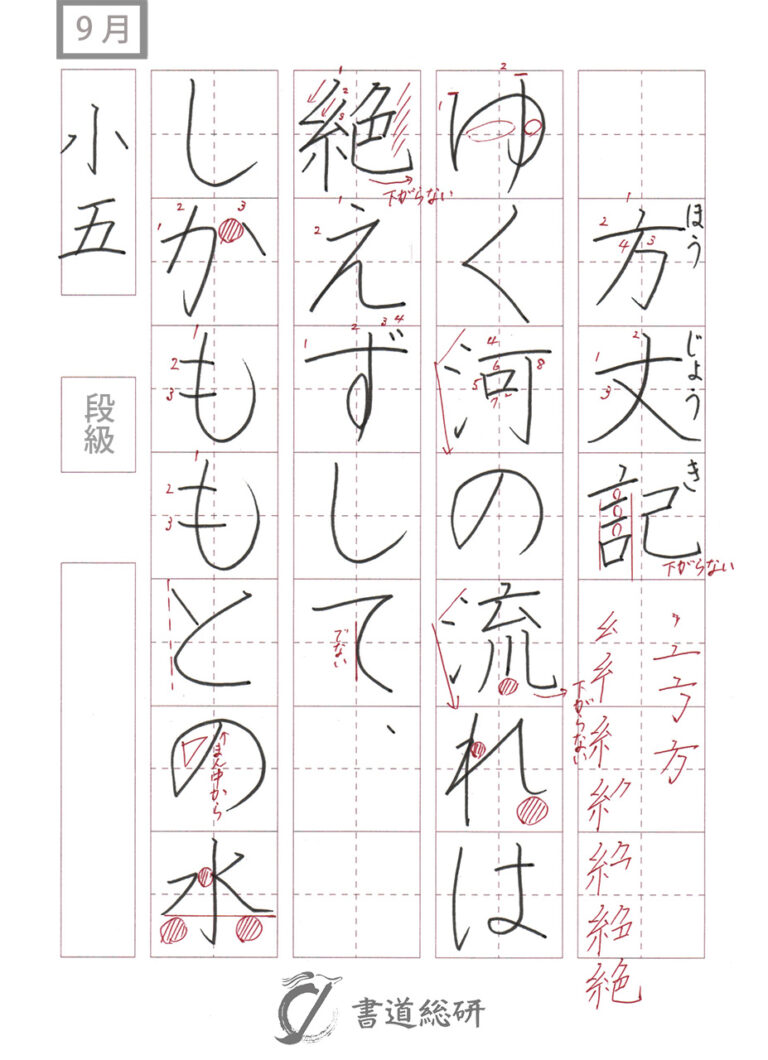 9月
方丈記
ほうじょうき
下がらない
ゆく河の流れは
下がらない
絶えずして、
下がらない
でない
しかももとの水
まん中から
小五
段級
書道総研